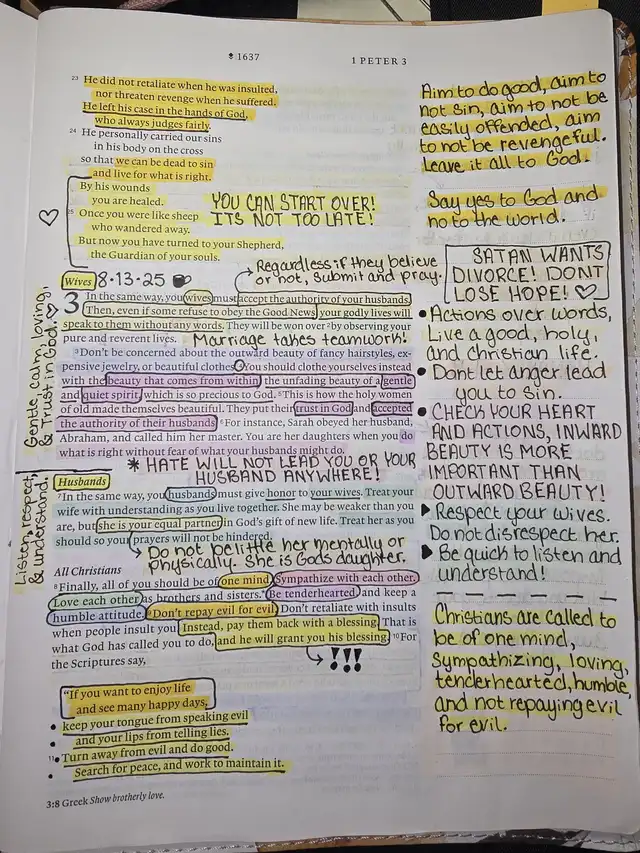 1637
1 PETER 3
23 He did not retaliate when he was insulted,
nor threaten revenge when he suffered.
He left his case in the hands of God,
who always judges fairly.
24 He personally carried our sins
in his body on the cross
so that we can be dead to sin
and live for what is right.
By his wounds
you are healed.
25 Once you were like sheep
who wandered away.
But now you have turned to your Shepherd,
the Guardian of your souls.
YOU CAN START OVER!
ITS NOT TOO LATE!
Wives 8·13·25
Regardless if they believe
or not, submit and pray.
3 In the same way, you wives must accept the authority of your husbands.
Then, even if some refuse to obey the Good News, your godly lives will
speak to them without any words. They will be won over 2 by observing your
pure and reverent lives. Marriage takes teamwork!
3 Don't be concerned about the outward beauty of fancy hairstyles, ex-
pensive jewelry, or beautiful clothes. 4 You should clothe yourselves instead
with the beauty that comes from within, the unfading beauty of a gentle
and quiet spirit, which is so precious to God. 5 This is how the holy women
of old made themselves beautiful. They put their trust in God and accepted
the authority of their husbands. 6 For instance, Sarah obeyed her husband,
Abraham, and called him her master. You are her daughters when you do
what is right without fear of what your husbands might do.
* HATE WILL NOT LEAD YOU OR YOUR
HUSBAND ANYWHERE!
Gentle, calm, loving,
& Trust in God.
Husbands
7 In the same way, you husbands must give honor to your wives. Treat your
wife with understanding as you live together. She may be weaker than you
are, but she is your equal partner in God's gift of new life. Treat her as you
should so your prayers will not be hindered.
Do not belittle her mentally or
physically. She is Gods daughter.
Listen, respect,
& understand!
All Christians
8 Finally, all of you should be of one mind. Sympathize with each other.
Love each other as brothers and sisters.* Be tenderhearted, and keep a
humble attitude. 9 Don't repay evil for evil. Don't retaliate with insults
when people insult you. Instead, pay them back with a blessing. That is
what God has called you to do, and he will grant you his blessing. 10 For
the Scriptures say,
!!!
"If you want to enjoy life
and see many happy days,
• keep your tongue from speaking evil
• and your lips from telling lies.
• 11 Turn away from evil and do good.
• Search for peace, and work to maintain it.
3:8 Greek Show brotherly love.
Aim to do good, aim to
not sin, aim to not be
easily offended, aim
to not be revengeful.
Leave it all to God.
Say yes to God and
no to the world.
SATAN WANTS
DIVORCE! DONT
LOSE HOPE! ♡
• Actions over words,
Live a good, holy,
and christian life.
• Dont let anger lead
you to sin.
• CHECK YOUR HEART
AND ACTIONS, INWARD
BEAUTY IS MORE
IMPORTANT THAN
OUTWARD BEAUTY!
▶ Respect your wives.
Do not disrespect her.
▶ Be quick to listen and
understand!
Christians are called to
be of one mind,
Sympathizing, loving,
tenderhearted, humble,
and not repaying evil
for evil.